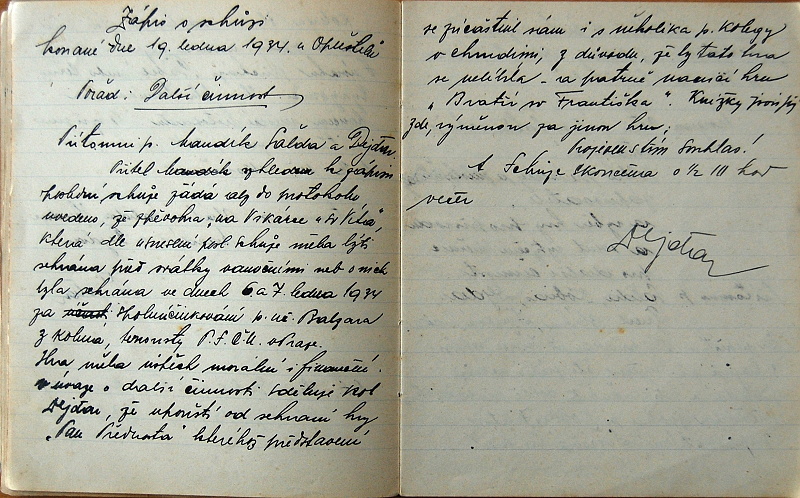 Zápis o schůzi
konané dne 19. ledna 1934. u
Pořad: Další činnost
Přítomni p. Mandík Šalda a Dejdar
Přítel Mandík vzhledem k zápisu
schůze žádá aby do protokolu
uvedeno, že zpěvohra „na Vikárce u Sv. Víta",
která dle usnesení posl. schůze měla býti
sehrána před svátky vánočními neb o nich
byla sehrána ve dnech 6. a 7. ledna 1934
za spoluúčinkování p. uč. Balzara
z Kolína, tenoristy P.S.Č.U. v Praze.
Hra, měla úspěch morální i finanční.
v úvaze o další činnosti sděluje kol
Dejdar, že upouští od sehrání hry
„Pan Přednosta" kteréhož představení
se zúčastnil sám i s několika p. kolegy
v Chrudimi, z důvodu, že by tato hra
se nelíbila – a patrně nacvičí hru
„Bratří sv Františka". Knížky
zde, výměnou za jinou hru,
souhlas!
A Schůze skončena o ½ 11 hod
večer
Dejdar